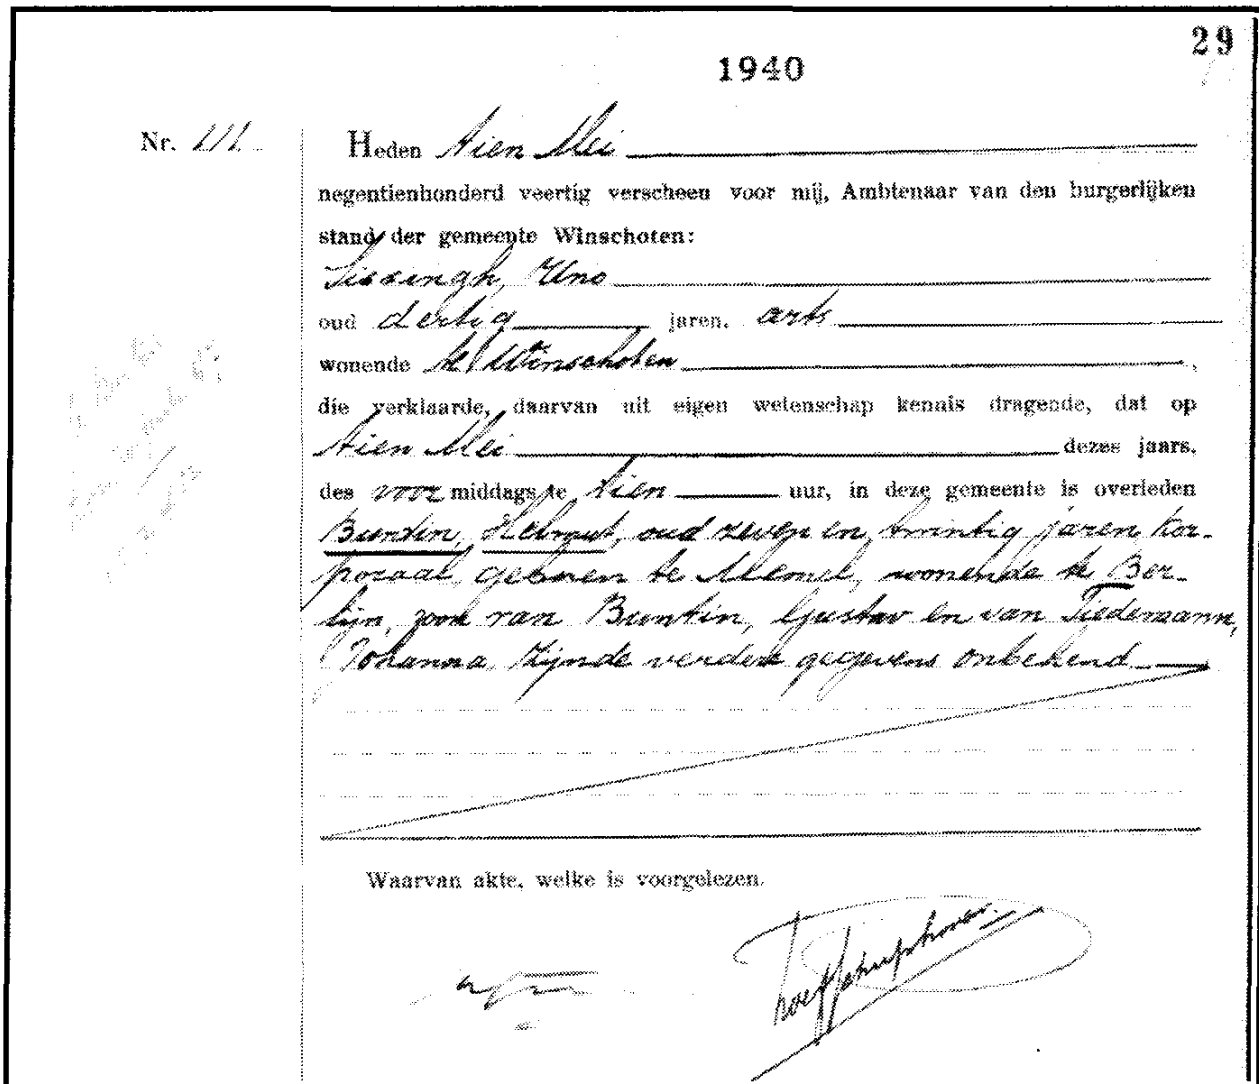 29
1940
Nr. 111
Heden tien Mei
negentienhonderd veertig verscheen voor mij, Ambtenaar van den burgerlijken
stand der gemeente Winschoten:
Sissingh, Uno
oud dertig jaren, arts
wonende te Winschoten,
die verklaarde, daarvan uit eigen wetenschap kennis dragende, dat op
tien Mei dezes jaars,
des voormiddags te tien uur, in deze gemeente is overleden
Buntin, Helmut, oud zeven en twintig jaren, kor-
poraal, geboren te Memel, wonende te Ber-
lijn, zoon van Buntin, Gustav en van Tiedemann,
Johanna, Zijnde verdere gegevens onbekend
Waarvan akte, welke is voorgelezen.